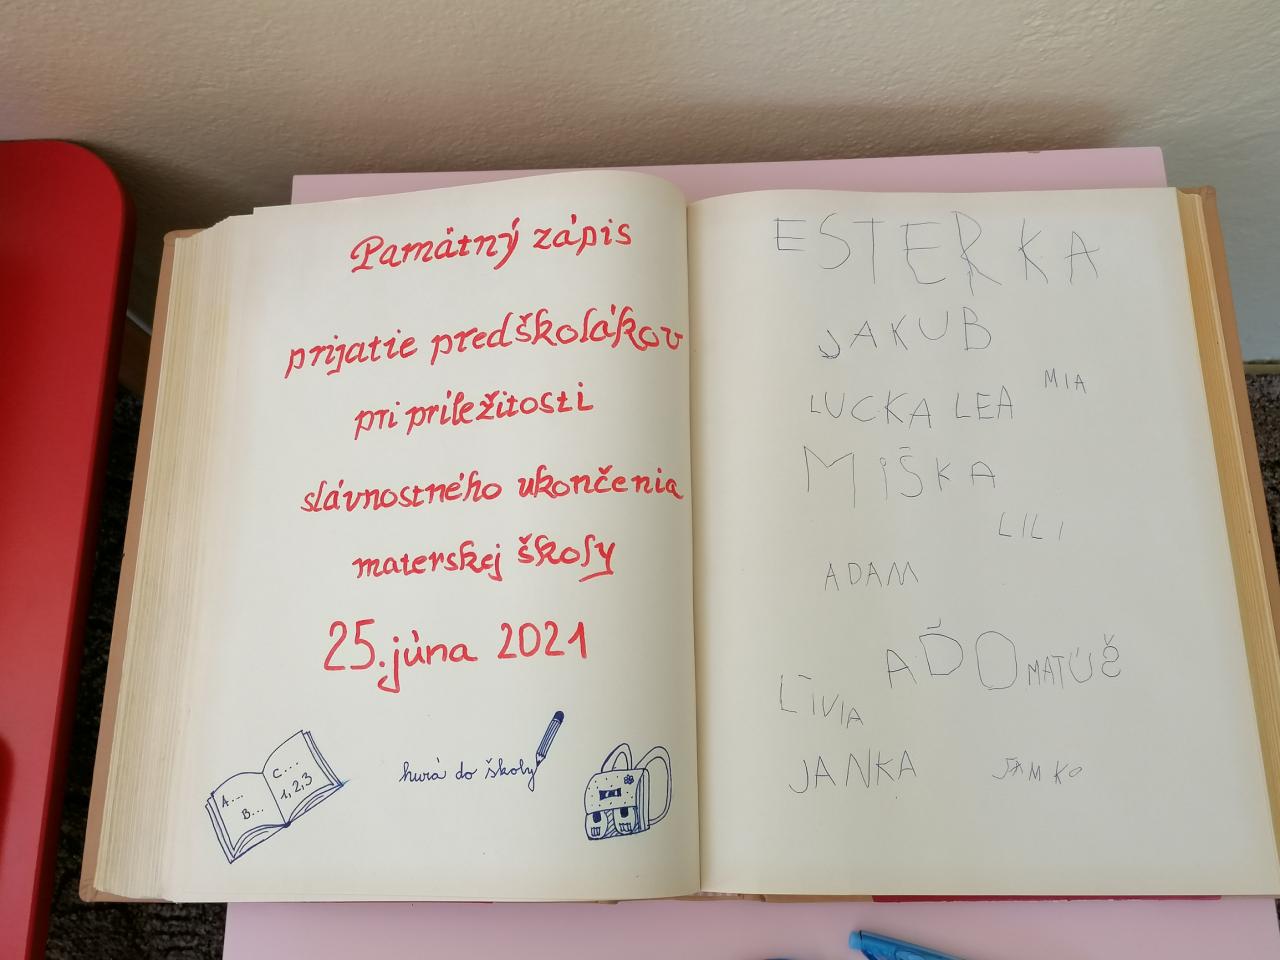 Pamätný zápis
prijatie predškolákov
pri príležitosti
slávnostného ukončenia
materskej školy
25. júna 2021
A... C....
B... 1,2,3
hurá do školy
ESTERKA
JAKUB
MIA
LUCKA LEA
MIŠKA
LILI
ADAM
AĎO MATÚŠ
LÍVIA
JANKA SAMKO